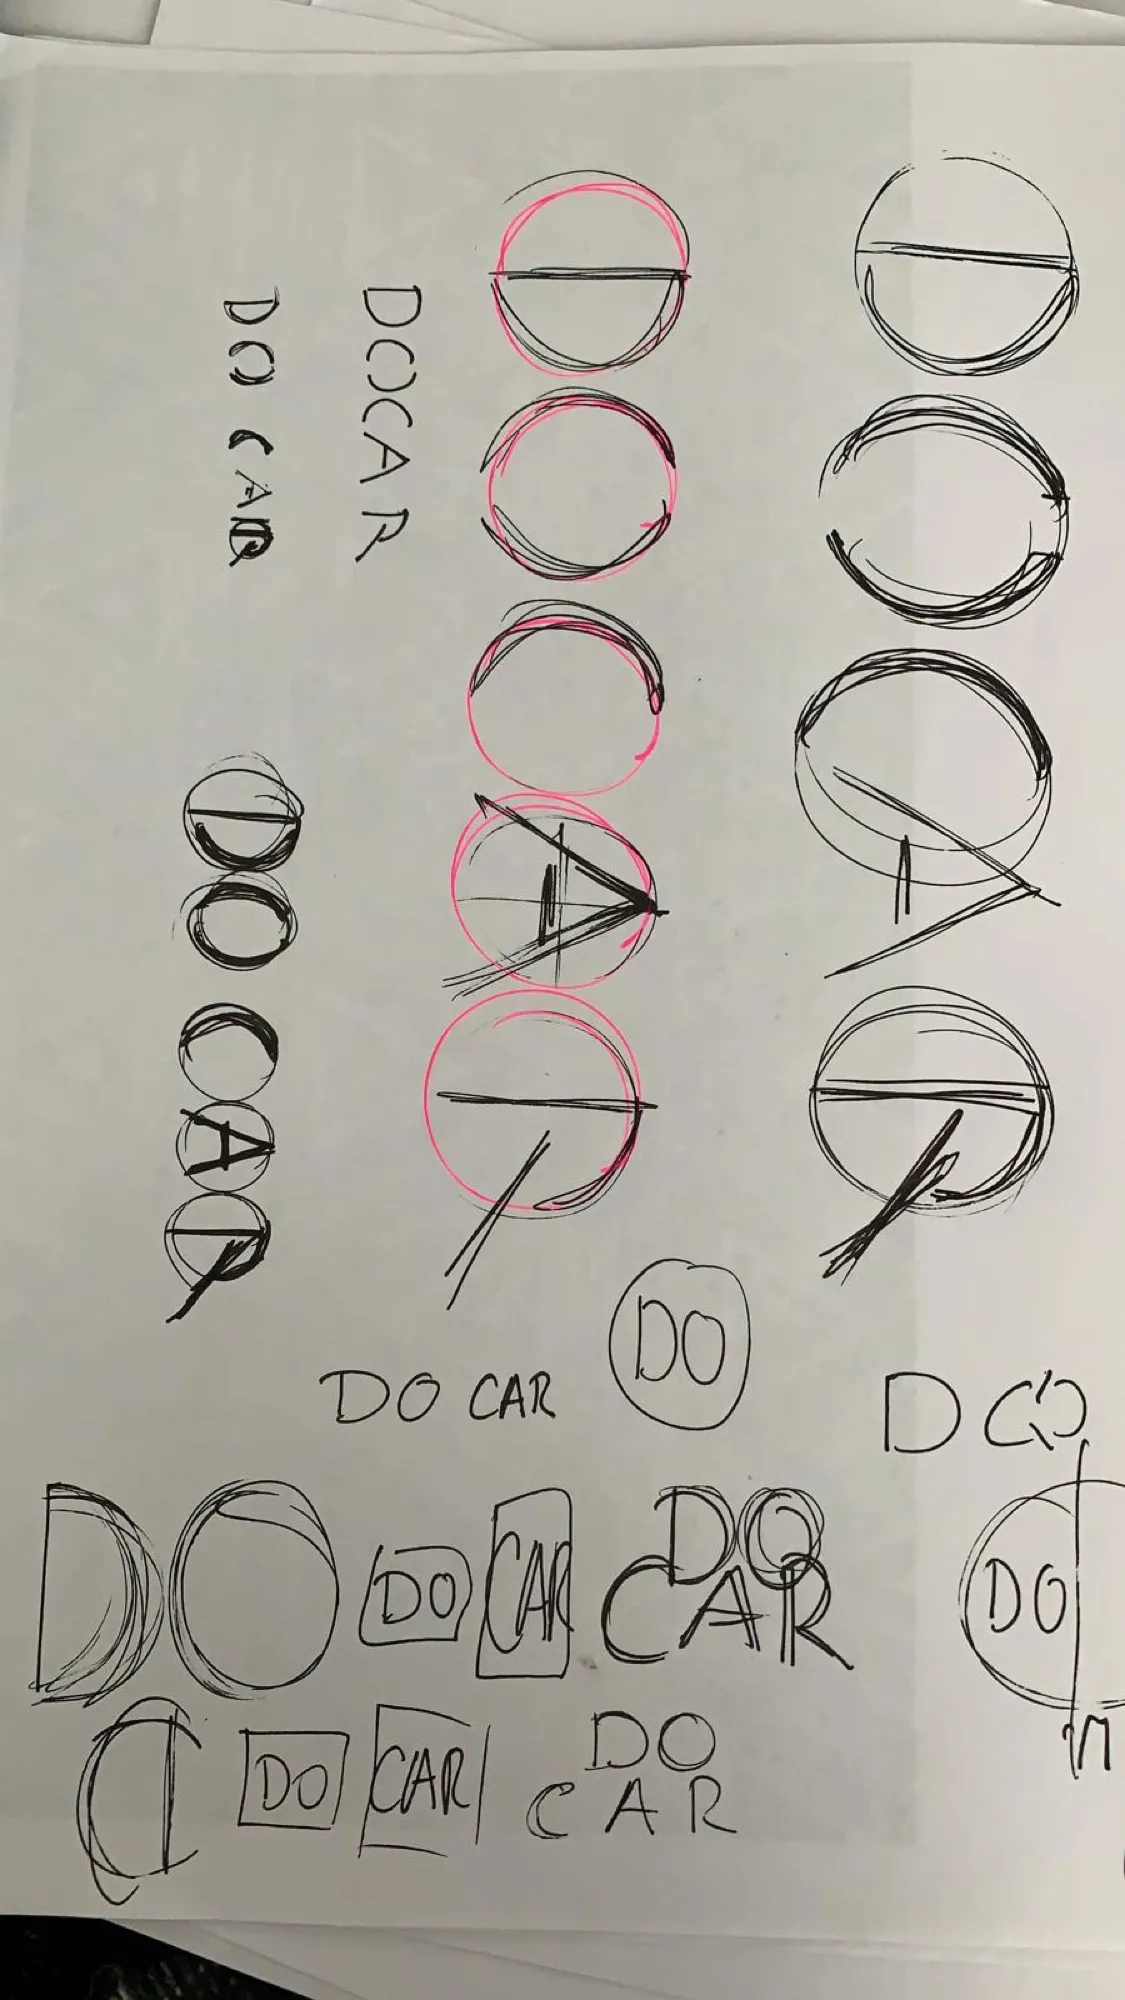 DOCAR
DOCAR
DOCAR
DO CAR
DO CAR
DO
DO CAR
DO
DO DO CAR DO
CAR
DO
DO CAR DO
CAR